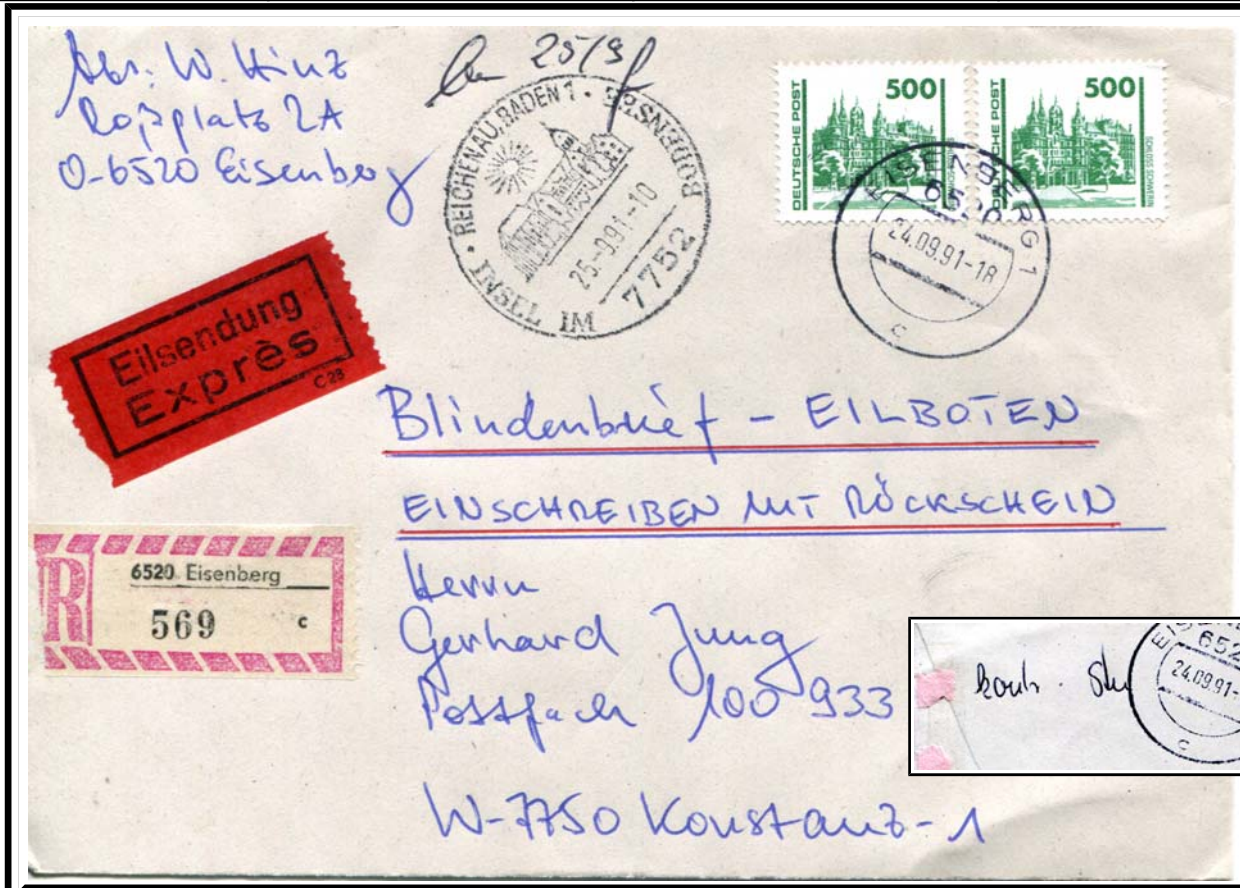 Abs. W. Hinz
Roßplatz 2A
O-6520 Eisenberg
25/9
REICHENAU, BADEN 1 · INSEL IM BODENSEE
25-9.91-10
7752
DEUTSCHE POST
500
DEUTSCHE POST
500
SCHLOSS SCHWERIN
EISENBERG 1
6520
24.09.91-18
c
Eilsendung
Exprès
C 28
Blindenbrief - EILBOTEN
EINSCHREIBEN MIT RÜCKSCHEIN
R
6520 Eisenberg
569 c
Herrn
Gerhard Jung
Postfach 100 933
W-7750 Konstanz-1
652
24.09.91-
c